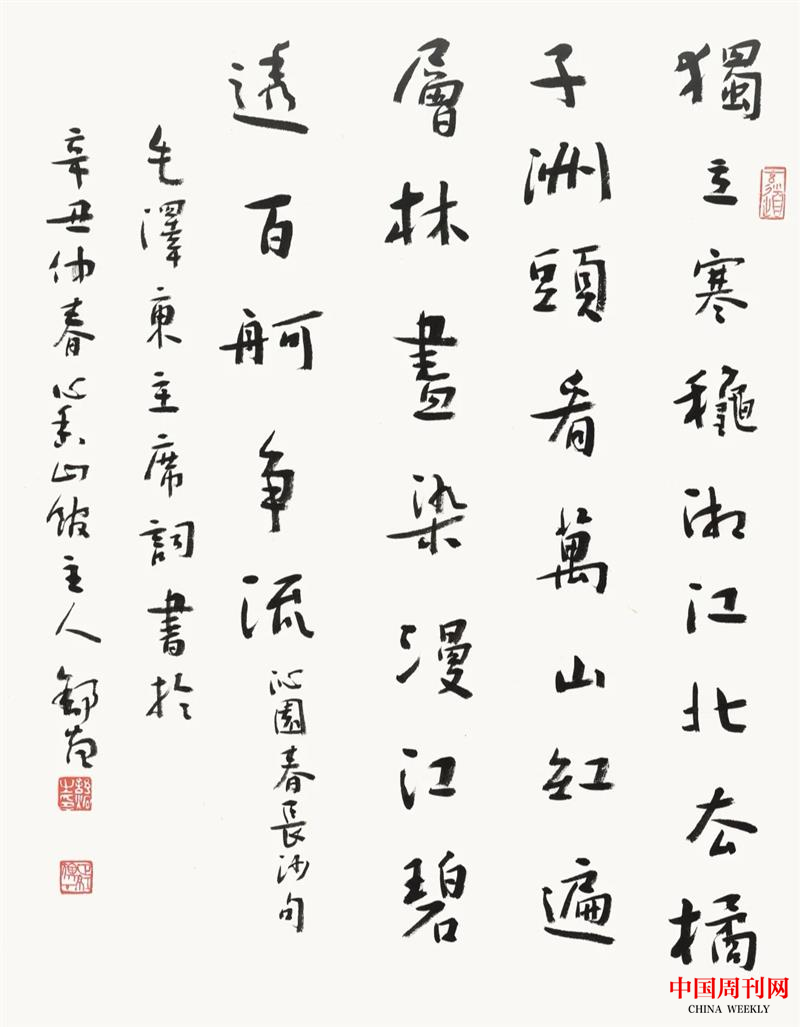 獨立寒穐湘江北去橘
子洲頭看萬山紅遍
層林盡染漫江碧
透百舸争流
沁園春長沙句
毛澤東主席詞書於
辛丑仲春心山館主人
中国周刊网
CHINA WEEKLY